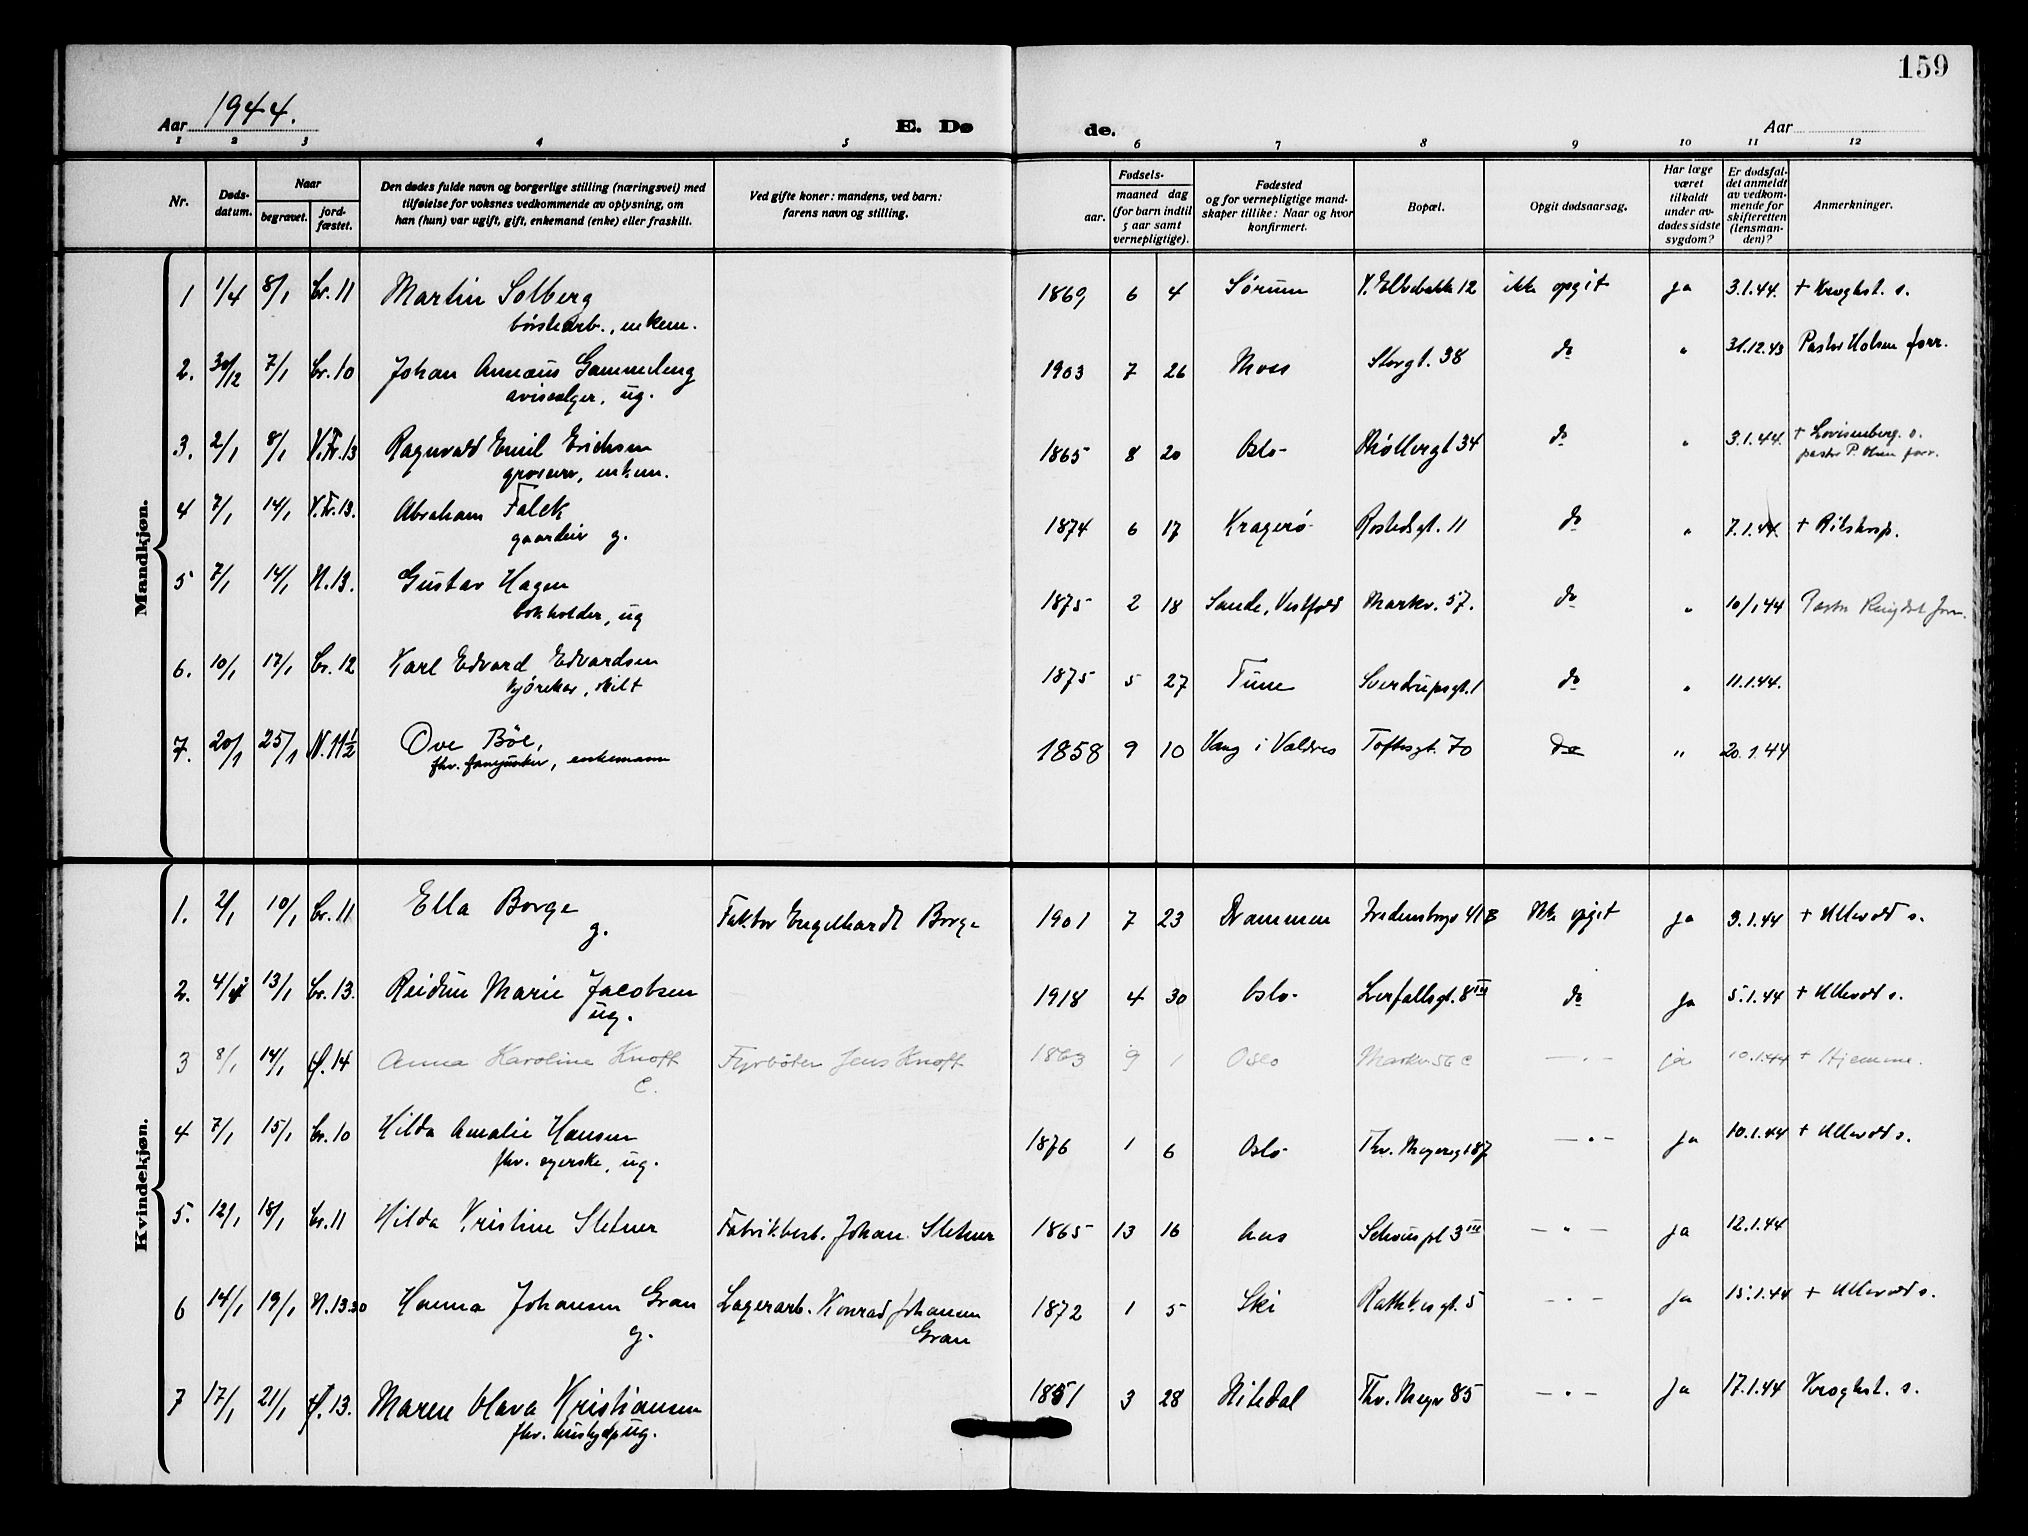 159
Aar 1944.
E. Døde.
Aar
1 2 3 4 5 6 7 8 9 10 11 12
Nr.
Døds-
datum.
Naar
begravet.
jord-
fæstet.
Den dødes fulde navn og borgerlige stilling (næringsvei) med
tilføielse for voksnes vedkommende av oplysning, om
han (hun) var ugift, gift, enkemand (enke) eller fraskilt.
Ved gifte koner: mandens, ved barn:
farens navn og stilling.
Fødsels-
aar.
maaned dag
(for barn indtil
5 aar samt
vernepligtige).
Fødested
og for vernepligtige mand-
skaper tillike: Naar og hvor
konfirmert.
Bopæl.
Opgit dødsaarsag.
Har læge
været
tilkaldt
under av-
dødes sidste
sygdom?
Er dødsfal-
det anmeldt
av vedkom-
mende for
skifteretten
(lensman-
den)?
Anmerkninger.
Mandkjøn.
1 1/4 8/1 Cr. 11 Martin Solberg 1869 6 4 Sørum V. Elvebakke 12 ikke opgit ja 3.1.44. + Kroghst. s.
børstearb., enkem.
2. 30/12 7/1 Cr. 10 Johan Annæus Gammeleng 1903 7 26 Moss Storgt. 38 do " 31.12.43 Pastor Holsen forr.
avisselger, ug.
3. 2/1 8/1 V.Kr. 13 Ragnvald Emil Erichsen 1865 8 20 Oslo Møllergt 34 do " 3.1.44. + Lovisenberg. s.
grosserer, enkem. pastor P. Olsen forr.
4 7/1 14/1 V.Kr. 13. Abraham Falck 1874 6 17 Kragerø Rostedsgt. 11 do " 7.1.44. + Rikshosp.
gaardeier g.
5 7/1 14/1 N. 13. Gustav Hagen 1875 2 18 Sande, Vestfold Markv. 57. do " 10/1 44 Pastor forr.
bokholder, ug
6. 10/1 17/1 Cr. 12 Karl Edvard Edvardsen 1875 5 27 Tune Sverdrupsgt. 1 do " 11.1.44.
kjørekar, skilt
7. 20/1 25/1 N. 11 1/2 Ove Bøe, 1858 9 10 Vang i Valdres Toftesgt. 70 do " 20.1.44
fhv. fanejunker, enkemann
Kvindekjøn.
1. 2/1 10/1 Cr. 11 Ella Borge Faktor Engelhardt Borge 1901 7 23 Drammen Fredensborgv 41 B ikke opgit ja 3.1.44 + Ullevål s.
g.
2. 4/1 13/1 Cr. 13. Reidun Marie Jacobsen 1918 4 30 Oslo Lerfallsgt. 8 III do ja 5.1.44 + Ullevål s.
ug.
3 8/1 14/1 14 Anna Karoline Knoff Fyrbøter Jens Knoff 1863 9 1 Oslo Markv 56 c — " — ja 10.1.44 + Hjemme.
E.
4 7/1 15/1 Cr. 10 Hilda Amalie Hansen 1876 1 6 Oslo Thv. Meyersg 187 — " — ja 10.1.44 + Ullevål s.
fhv. syerske, ug.
5. 12/1 18/1 Cr. 11 Hilda Kristine Sletner Fabrikbest. Johan Sletner 1865 13 16 Aas Schouspl 3 III — " — ja 12.1.44
6 14/1 19/1 N. 13.30 Hanna Johansen Gran Lagerarb. Konrad Johansen 1872 1 5 Ski Rathkesgt. 5 — " — ja 15.1.44 + Ullevål s.
g. Gran
7 17/1 21/1 13. Maren Olava Kristiansen 1851 3 28 Hitedal Thv. Meyer 85 — " — ja 17.1.44 Kroghst. s.
fhv. ug.